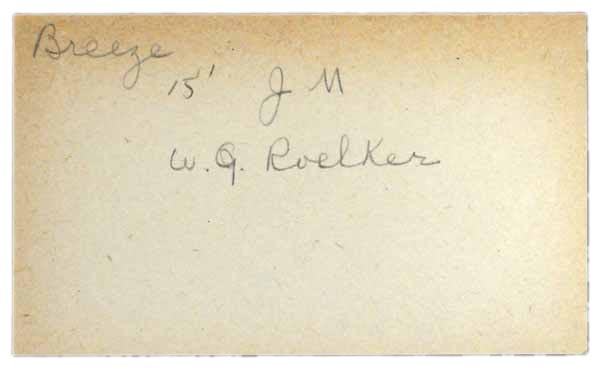 Breeze
15' J M
W. G. Roelker